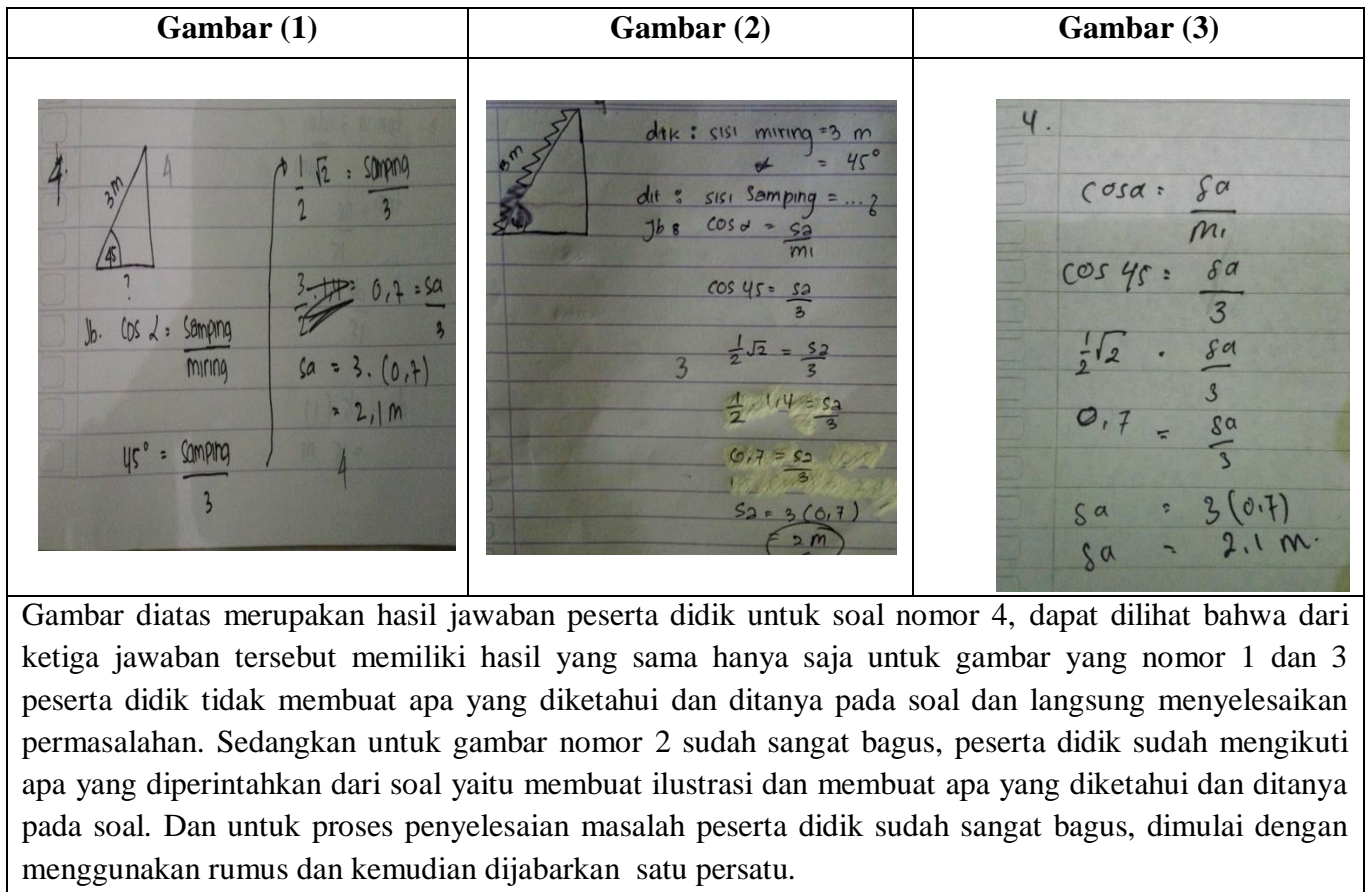 Gambar (1)
Gambar (2)
Gambar (3)
4.
3 m
4
45
?
Jb. Cos α = samping
miring
45° = samping
3
1 √2 = samping
2 3
0,7 = sa
3
sa = 3. (0,7)
= 2,1 m
4
3 m
dik : sisi miring = 3 m
α = 45°
dit : sisi samping = ... ?
Jb : cos α = sa
mi
cos 45 = sa
3
3
1/2 √2 = sa
3
1/2 1,4 = sa
3
0,7 = sa
3
sa = 3 (0,7)
= 2 m
4.
cos α = sa
mi
cos 45 = sa
3
1/2 √2 = sa
3
0,7 = sa
3
sa = 3 (0,7)
sa = 2,1 m.
Gambar diatas merupakan hasil jawaban peserta didik untuk soal nomor 4, dapat dilihat bahwa dari
ketiga jawaban tersebut memiliki hasil yang sama hanya saja untuk gambar yang nomor 1 dan 3
peserta didik tidak membuat apa yang diketahui dan ditanya pada soal dan langsung menyelesaikan
permasalahan. Sedangkan untuk gambar nomor 2 sudah sangat bagus, peserta didik sudah mengikuti
apa yang diperintahkan dari soal yaitu membuat ilustrasi dan membuat apa yang diketahui dan ditanya
pada soal. Dan untuk proses penyelesaian masalah peserta didik sudah sangat bagus, dimulai dengan
menggunakan rumus dan kemudian dijabarkan satu persatu.